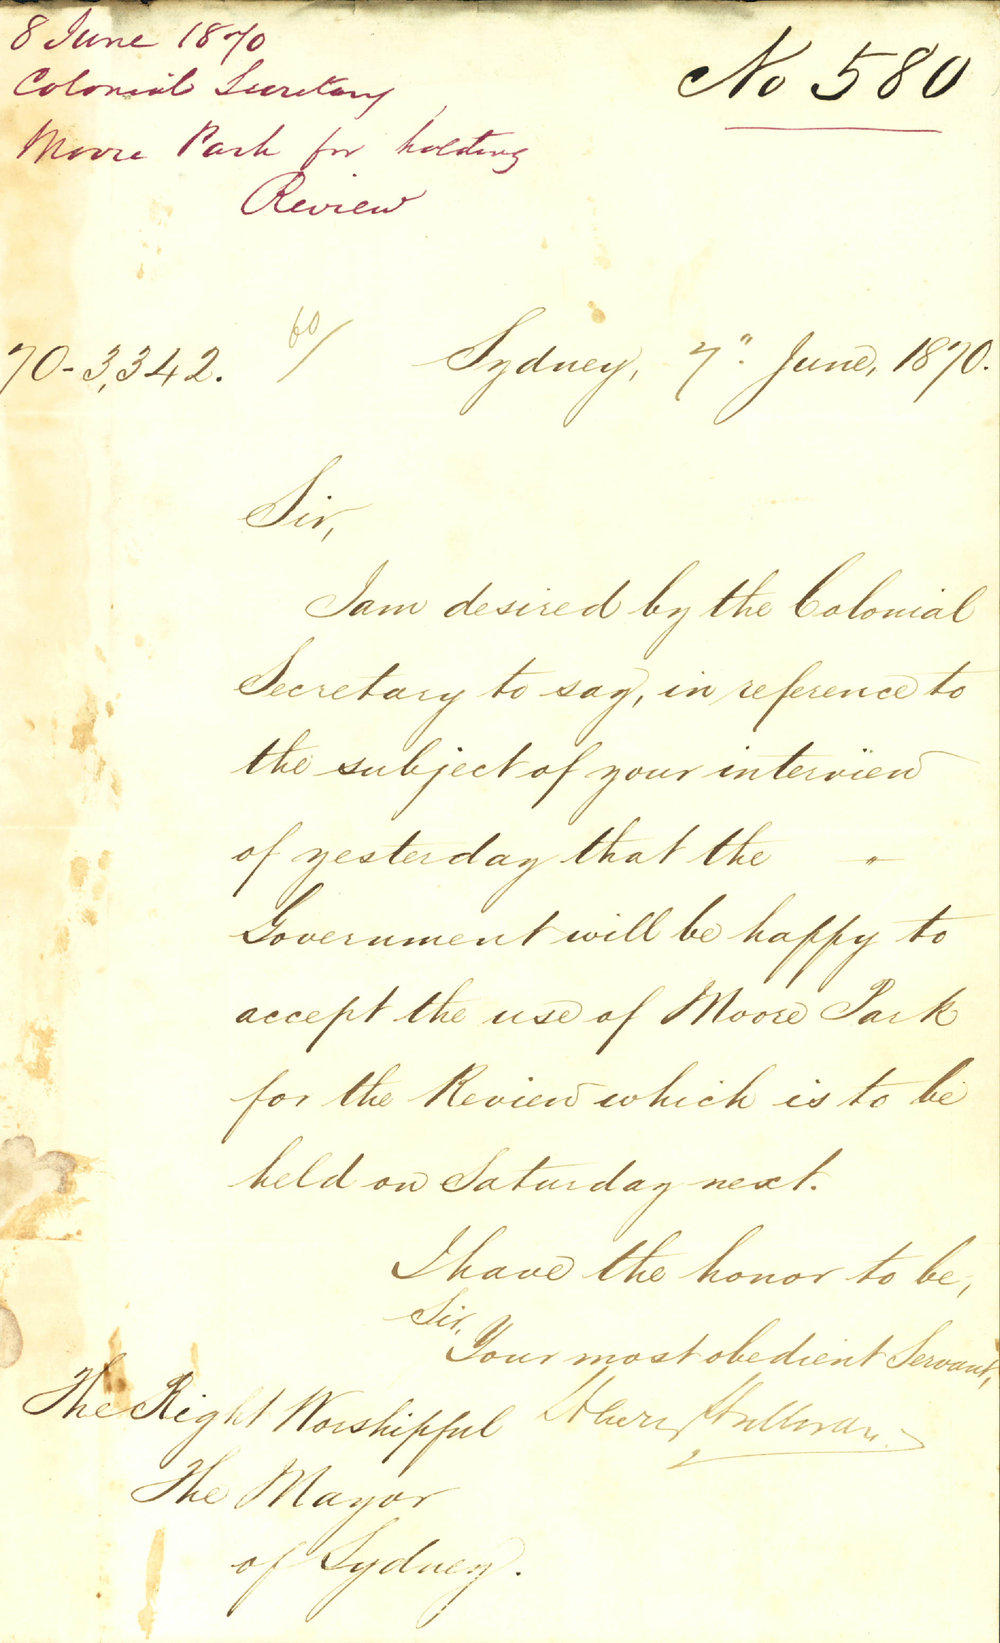 8 June 1870
Colonial Secretary
Moore Park for holding
Review
No 580
70-3,342.
60/
Sydney, 7" June, 1870.
Sir,
I am desired by the Colonial
Secretary to say, in reference to
the subject of your interview
of yesterday that the "
Government will be happy to
accept the use of Moore Park
for the Review which is to be
held on Saturday next.
I have the honor to be,
Sir,
Your most obedient Servant,
Henry Halloran
The Right Worshipful
The Mayor
of Sydney.